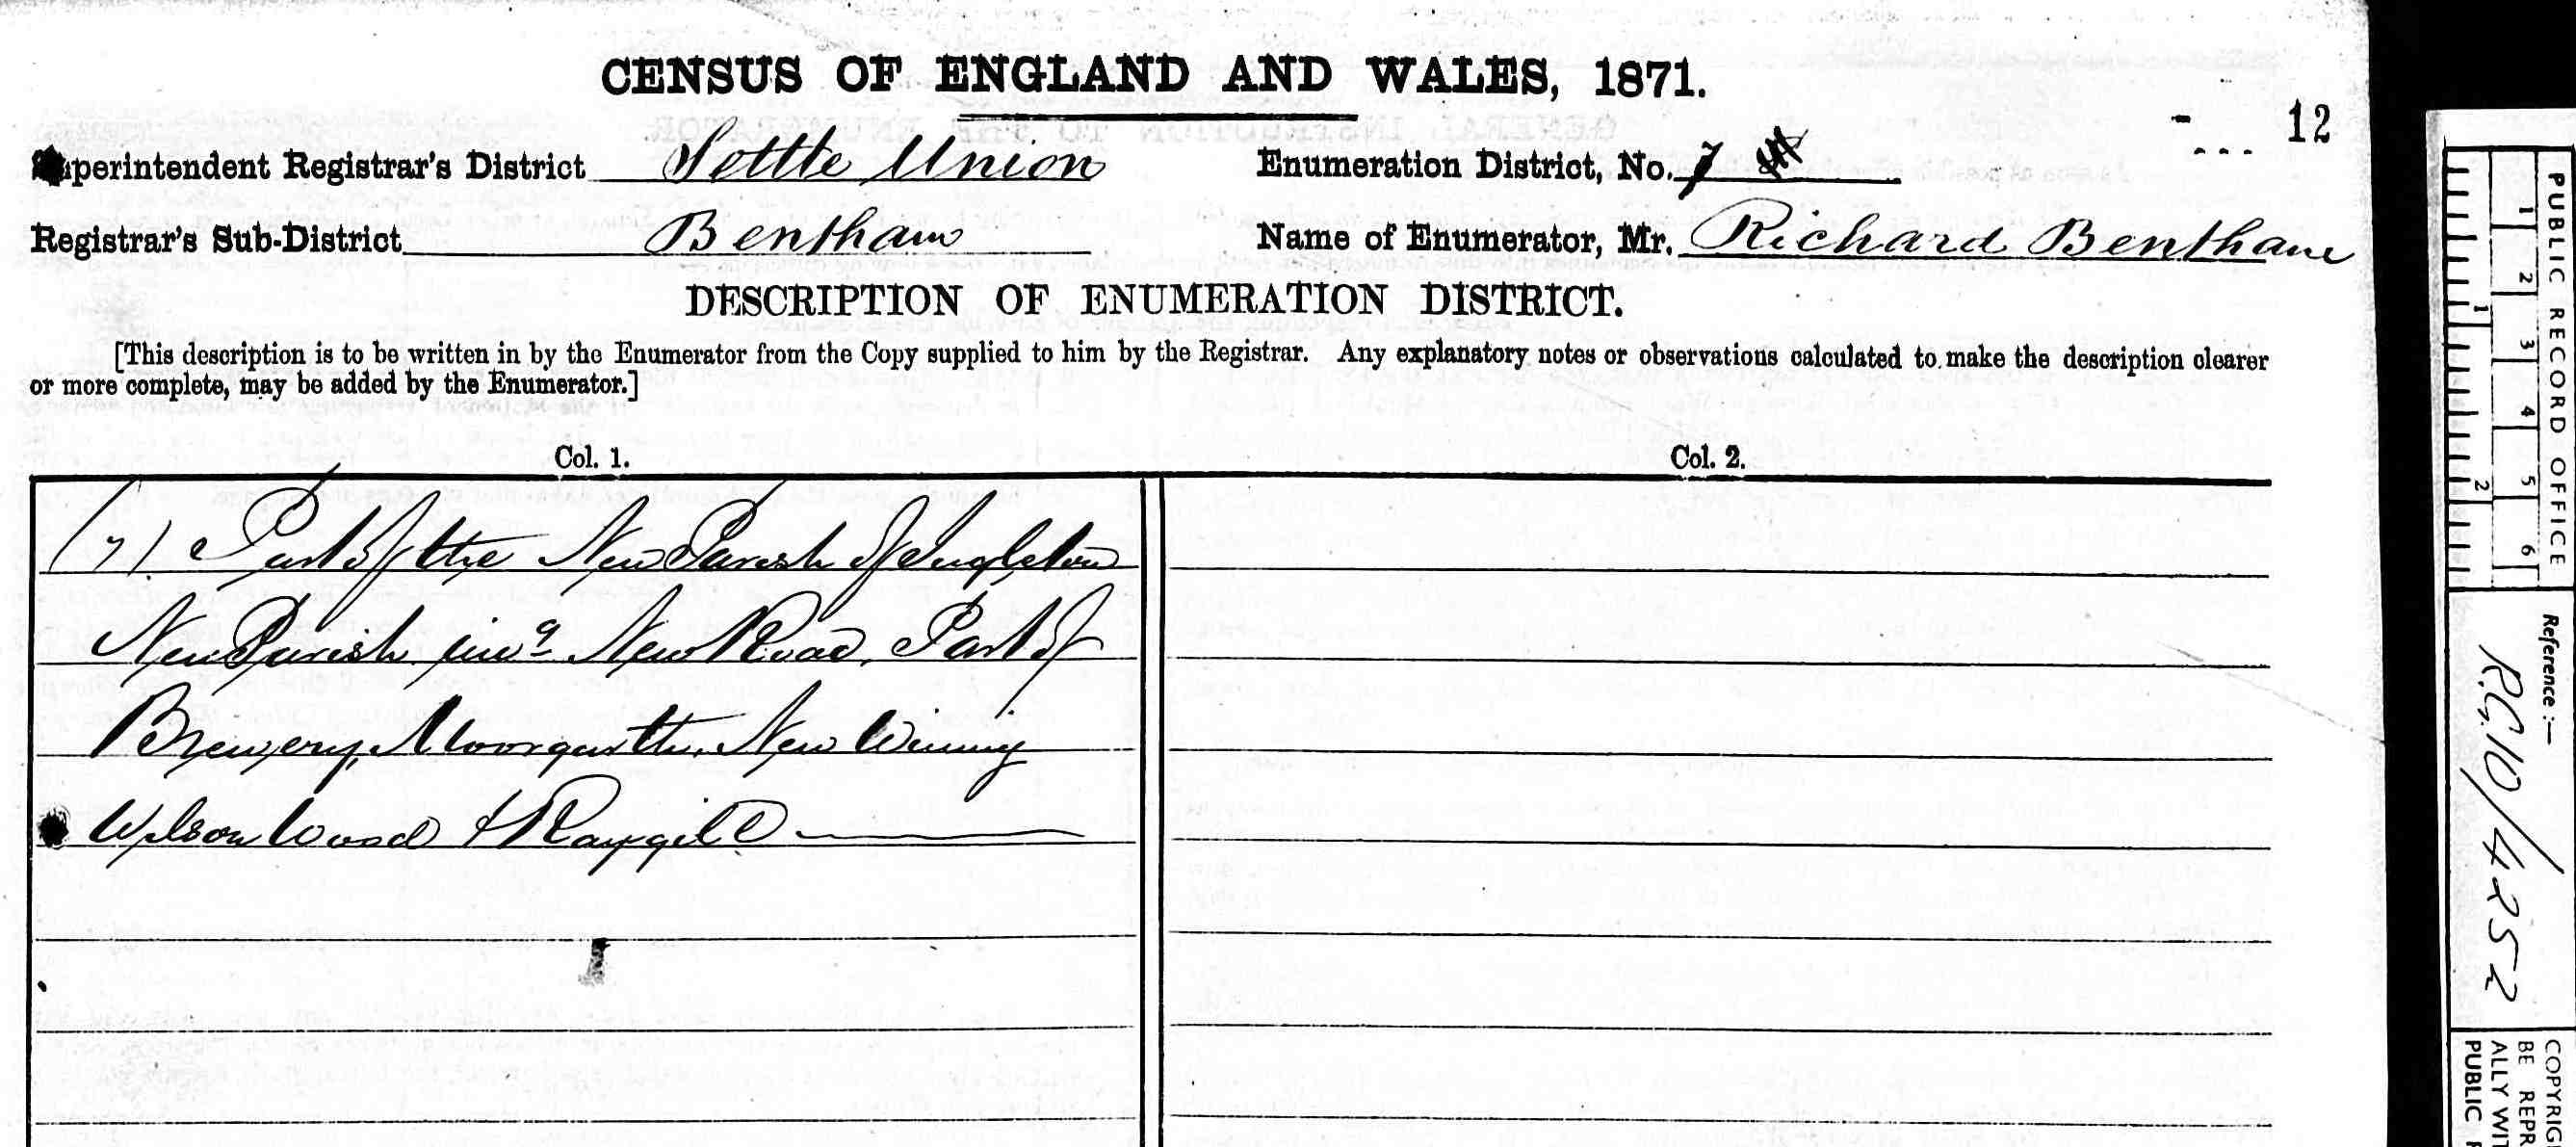 CENSUS OF ENGLAND AND WALES, 1871.
12
Superintendent Registrar's District Settle Union
Enumeration District, No. 7
Registrar's Sub-District Bentham
Name of Enumerator, Mr. Richard Bentham
DESCRIPTION OF ENUMERATION DISTRICT.
[This description is to be written in by the Enumerator from the Copy supplied to him by the Registrar. Any explanatory notes or observations calculated to make the description clearer
or more complete, may be added by the Enumerator.]
Col. 1.
Col. 2.
(7). Part of the New Parish of Ingleton
New Parish New Road, Part of
Brewery, Moorgarth, New Winnig
Wilson Wood & Raygill
PUBLIC RECORD OFFICE
1 2 3 4 5 6
1 2
Reference :—
R.G. 10/4252
COPYRIG
BE REPR
ALLY WIT
PUBLIC